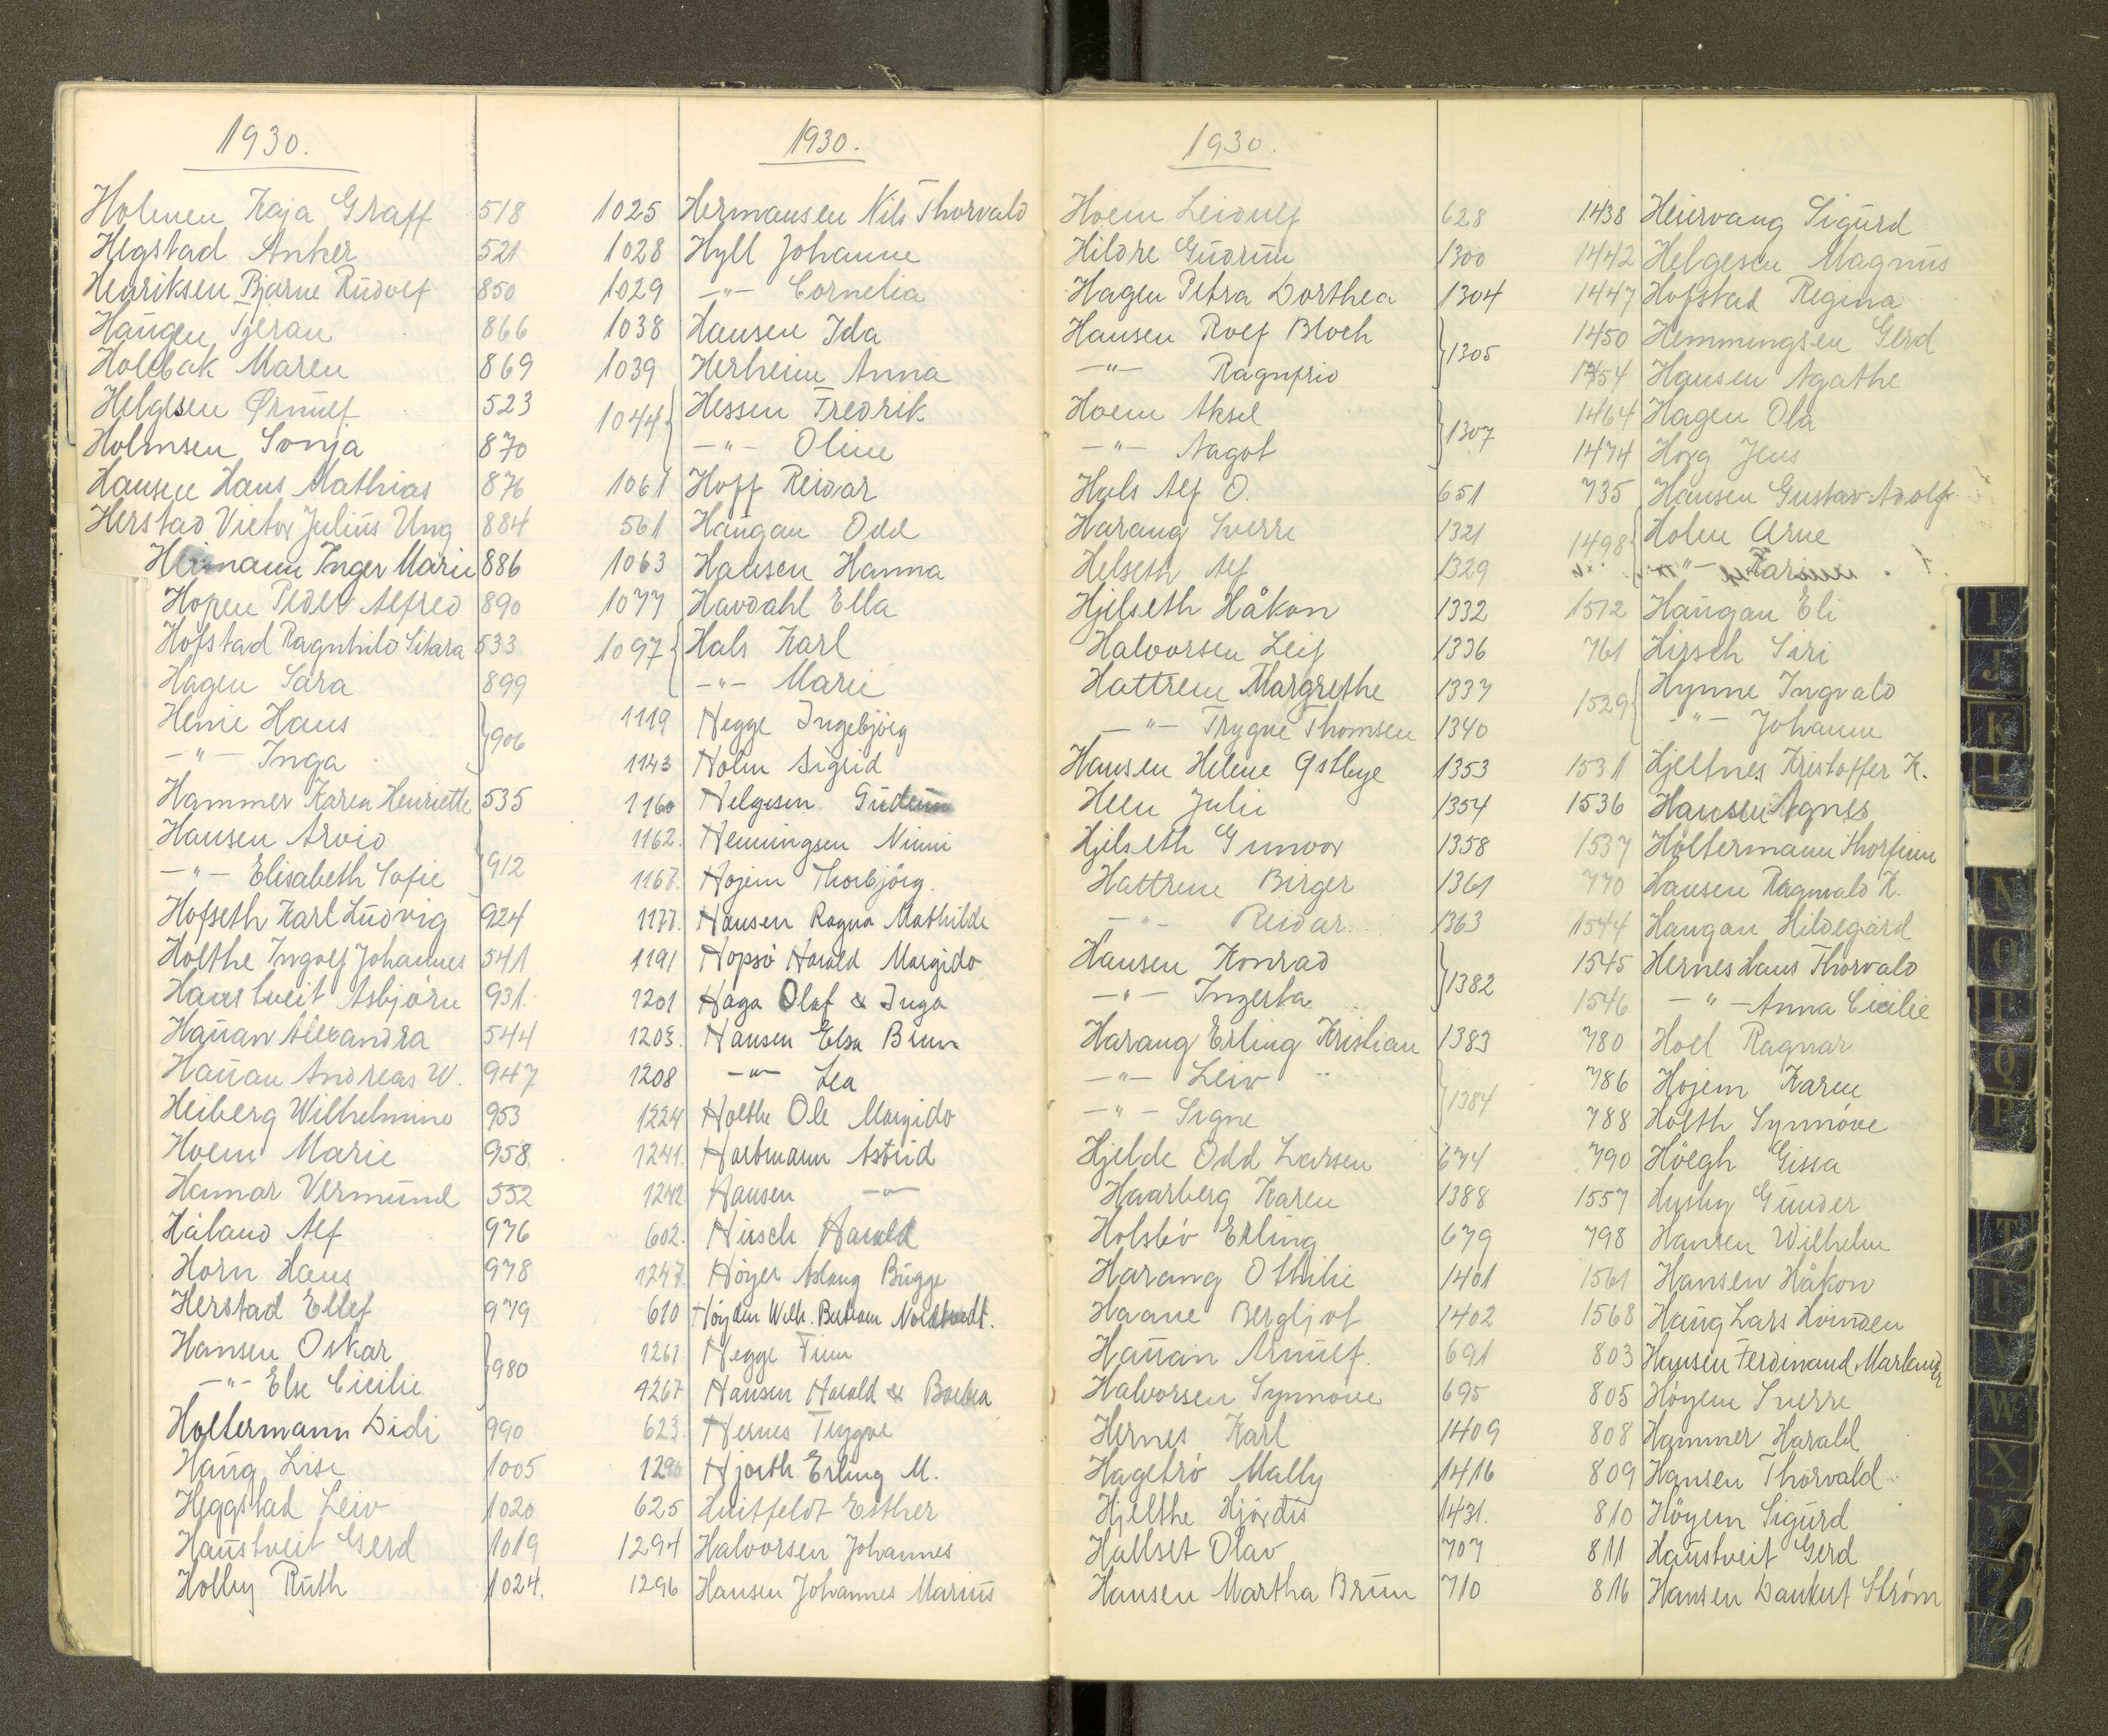 1930.
Holmen Kaja Graff 518
Hegstad Anker 521
Henriksen Bjarne Rudolf 850
Haugen Tjeran 866
Holbak Maren 869
Helgesen Ørnulf 523
Holmsen Sonja 870
Hansen Hans Mathias 876
Herstad Victor Julius Ung 884
Hermann Inger Marie 886
Hopen Peder Alfred 890
Hofstad Ragnhild Sitara 533
Hagen Sara 899
Henie Hans
-"- Inga } 906
Hammer Karen Henriette 535
Hansen Arvid
-"- Elisabeth Sofie } 912
Hofseth Karl Ludvig 924
Holthe Ingolf Johannes 541
Haustveit Asbjørn 931
Hauan Alexandra 544
Hauan Andreas W. 947
Heiberg Wilhelmine 953
Hoem Marie 958
Hamar Vermund 552
Håland Alf 976
Horn Hans 978
Herstad Ellef 979
Hansen Oskar
-"- Else Cicilie } 980
Holtermann Didi 990
Haug Lise 1005
Heggstad Leiv 1020
Haustveit Gerd 1019
Holby Ruth 1024.
1930.
1025 Hermansen Nils Thorvald
1028 Hyll Johanne
1029 -"- Cornelia
1038 Hansen Ida
1039 Herheim Anna
1044 { Hessen Fredrik
-"- Oline
1061 Hoff Reidar
561 Haugan Odd
1063 Hansen Hanna
1077 Havdahl Ella
1097 { Hals Karl
-"- Marie
1119 Hegge Ingebjörg
1143 Holm Sigrid
1160 Helgesen Gudrun
1162. Henningsen Ninni
1167. Hojem Thorbjörg.
1177. Hansen Ragna Mathilde
1191 Hopsö Harald Margido
1201 Haga Olaf & Inga
1203. Hansen Elsa Brun
1208 -"- Lea
1224 Holthe Ole Margido
1241. Hartmann Astrid
1242 Hansen -"-
602. Hirsch Harald
1247. Höyer Aslaug Bugge
610 Höyden Wilh. Berthran
1261 Hegge Finn
1267 Hansen Harald & Borbra
623. Hernes Trygve
1290 Hjorth Erling M.
625 Huitfeldt Esther
1294 Halvorsen Johannes
1296 Hansen Johannes Marius
1930.
Hoem Leidulf 628
Hildre Gudrun 1300
Hagen Petra Dorthea 1304
Hansen Rolf Bloch
-"- Ragnfrid } 1305
Hoem Aksel
-"- Nagot } 1307
Hals Alf O. 651
Harang Sverre 1321
Helseth Alf 1329
Hjelseth Håkon 1332
Halvorsen Leif 1336
Hattrem Margrethe 1337
-"- Trygve Thomsen 1340
Hansen Helene Østbye 1353
Heen Julie 1354
Hjelseth Gunvor 1358
Hattrem Birger 1361
-"- Reidar 1363
Hansen Konrad
-"- Ingerta } 1382
Harang Erling Kristian 1383
-"- Leiv
-"- Signe } 1384
Hjelde Odd Larsen 674
Haarberg Karen 1388
Holsbö Erling 679
Harang Othilie 1401
Haane Bergljot 1402
Hauan Arnulf. 691
Halvorsen Synnöve 695
Hernes Karl 1409
Hagebrö Mally 1416
Hjelthe Hjördis 1431.
Hallset Olav 707
Hansen Martha Brun 710
1438 Heiervang Sigurd
1442 Helgesen Magnus
1447 Hofstad Regina
1450 Hemmingsen Gerd
1454 Hansen Agathe
1464 Hagen Ola
1474 Horg Jens
735 Hansen Gustav Adolf
1498 { Holm Arne
-"- Karin
1512 Haugan Eli
761 Hirsch Siri
1529 { Hynne Ingvald
-"- Johanne
1531 Hjeltnes Kristoffer K.
1536 Hansen Agnes
1537 Holtermann Thorfinn
770 Hansen Ragnvald K.
1544 Haugan Hildegard
1545 Hernes Hans Thorvald
1546 -"- Anna Cicilie
780 Hoel Ragnar
786 Hojem Karen
788 Holth Synnöve
790 Höegh Gissa
1557 Husby Gunder
798 Hansen Wilhelm
1561 Hansen Håkon
1568 Haug Lars Hvinden
803 Hansen Ferdinand Marlander
805 Höyem Sverre
808 Hammer Harald
809 Hansen Thorvald
810 Höyem Sigurd
811 Haustveit Gerd
816 Hansen Dankert Ström
I
J
K
L
N
O
P
Q
T
U
V
W
X
Y
Z